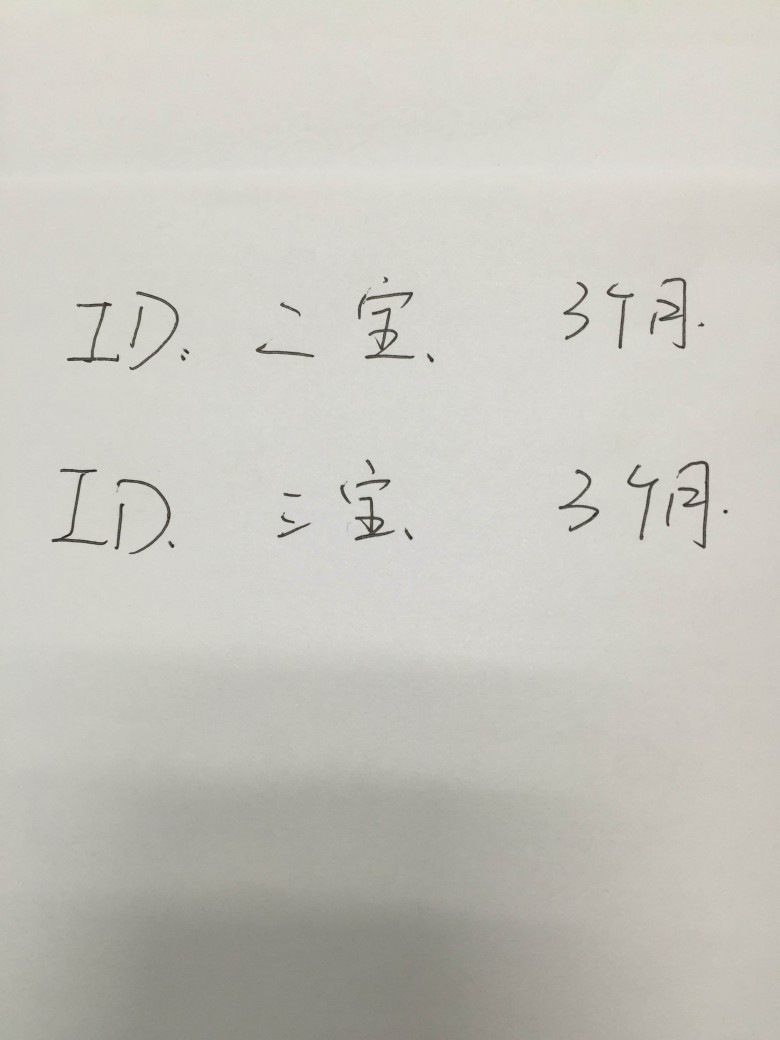 ID. 二宝、 3个月.
ID、 三宝、 3个月.